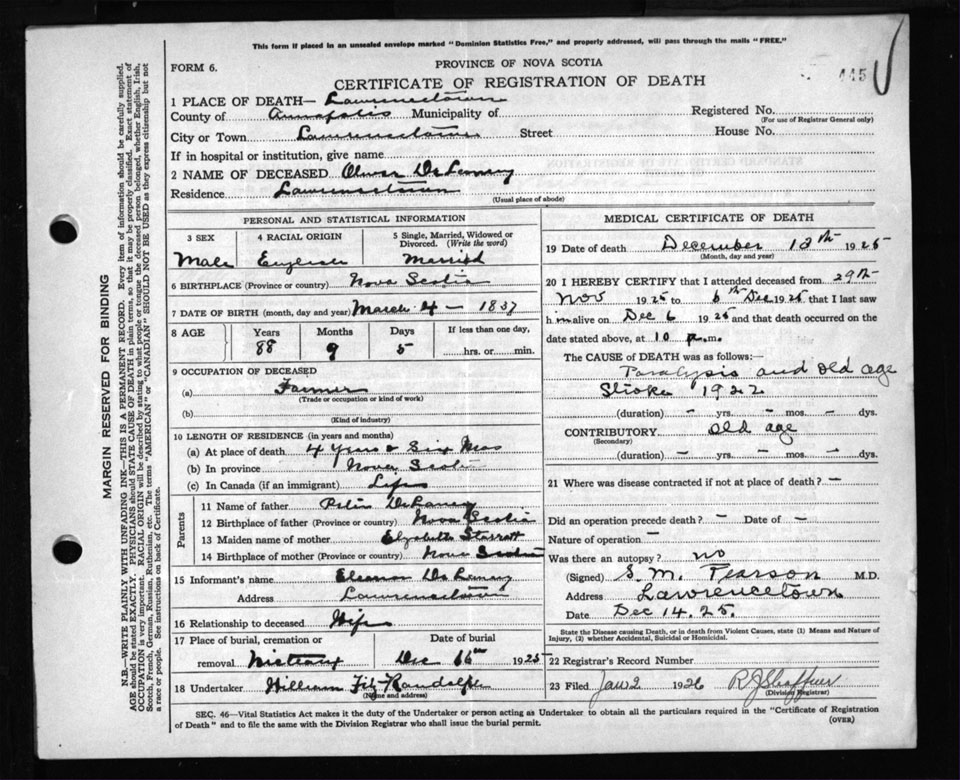 This form if placed in an unsealed envelope marked "Dominion Statistics Free," and properly addressed, will pass through the mails "FREE."
FORM 6.
PROVINCE OF NOVA SCOTIA
CERTIFICATE OF REGISTRATION OF DEATH
445
1 PLACE OF DEATH— Lawrencetown
County of Annapolis Municipality of Registered No.
(For use of Registrar General only)
City or Town Lawrencetown Street House No.
If in hospital or institution, give name
2 NAME OF DECEASED Oliver DeLancey
Residence Lawrencetown
(Usual place of abode)
PERSONAL AND STATISTICAL INFORMATION
3 SEX 4 RACIAL ORIGIN 5 Single, Married, Widowed or Divorced. (Write the word)
Male English Married
6 BIRTHPLACE (Province or country) Nova Scotia
7 DATE OF BIRTH (month, day and year) March 4 — 1837
8 AGE Years Months Days If less than one day,
88 9 5 hrs. or min.
9 OCCUPATION OF DECEASED
(a) Farmer
(Trade or occupation or kind of work)
(b)
(Kind of industry)
10 LENGTH OF RESIDENCE (in years and months)
(a) At place of death 4 years & Six Mos
(b) In province Nova Scotia
(c) In Canada (if an immigrant) Life
Parents
11 Name of father DeLancey
12 Birthplace of father (Province or country) Nova Scotia
13 Maiden name of mother Elizabeth Starratt
14 Birthplace of mother (Province or country) Nova Scotia
15 Informant's name Eleanor DeLancey
Address Lawrencetown
16 Relationship to deceased Wife
17 Place of burial, cremation or removal Nictaux
Date of burial Dec 16th 1925
18 Undertaker William Fitz-Randolph
(Name and address)
MEDICAL CERTIFICATE OF DEATH
19 Date of death December 13th 1925
(Month, day and year)
20 I HEREBY CERTIFY that I attended deceased from 29th
Nov 1925 to 6th Dec 1925 that I last saw
him alive on Dec 6 1925 and that death occurred on the
date stated above, at 10 p.m.
The CAUSE of DEATH was as follows:
Paralysis and old age
Stroke 1922
(duration) – yrs. – mos. – dys.
CONTRIBUTORY Old age
(Secondary)
(duration) — yrs. – mos. – dys.
21 Where was disease contracted if not at place of death? —
Did an operation precede death? – Date of –
Nature of operation —
Was there an autopsy? no
(Signed) S. M. Pearson M.D.
Address Lawrencetown
Date Dec 14. 25.
State the Disease causing Death, or in death from Violent Causes, state (1) Means and Nature of Injury, (2) whether Accidental, Suicidal or Homicidal.
22 Registrar's Record Number
23 Filed Jan 2 1926 R J Shaffner
(Division Registrar)
SEC. 46—Vital Statistics Act makes it the duty of the Undertaker or person acting as Undertaker to obtain all the particulars required in the "Certificate of Registration
of Death" and to file the same with the Division Registrar who shall issue the burial permit.
(OVER)
MARGIN RESERVED FOR BINDING
N.B.—WRITE PLAINLY WITH UNFADING INK—THIS IS A PERMANENT RECORD. Every item of information should be carefully supplied.
AGE should be stated EXACTLY. PHYSICIANS should STATE CAUSE OF DEATH in plain terms, so that it may be properly classified. Exact statement of
OCCUPATION is very important. RACIAL ORIGIN will be described by stating to what people or tongue the deceased person belonged, whether English, Irish,
Scotch, French, German, Russian, Ruthenian, etc. The terms "AMERICAN" or "CANADIAN" SHOULD NOT BE USED as they express citizenship but not
a race or people. See instructions on back of Certificate.